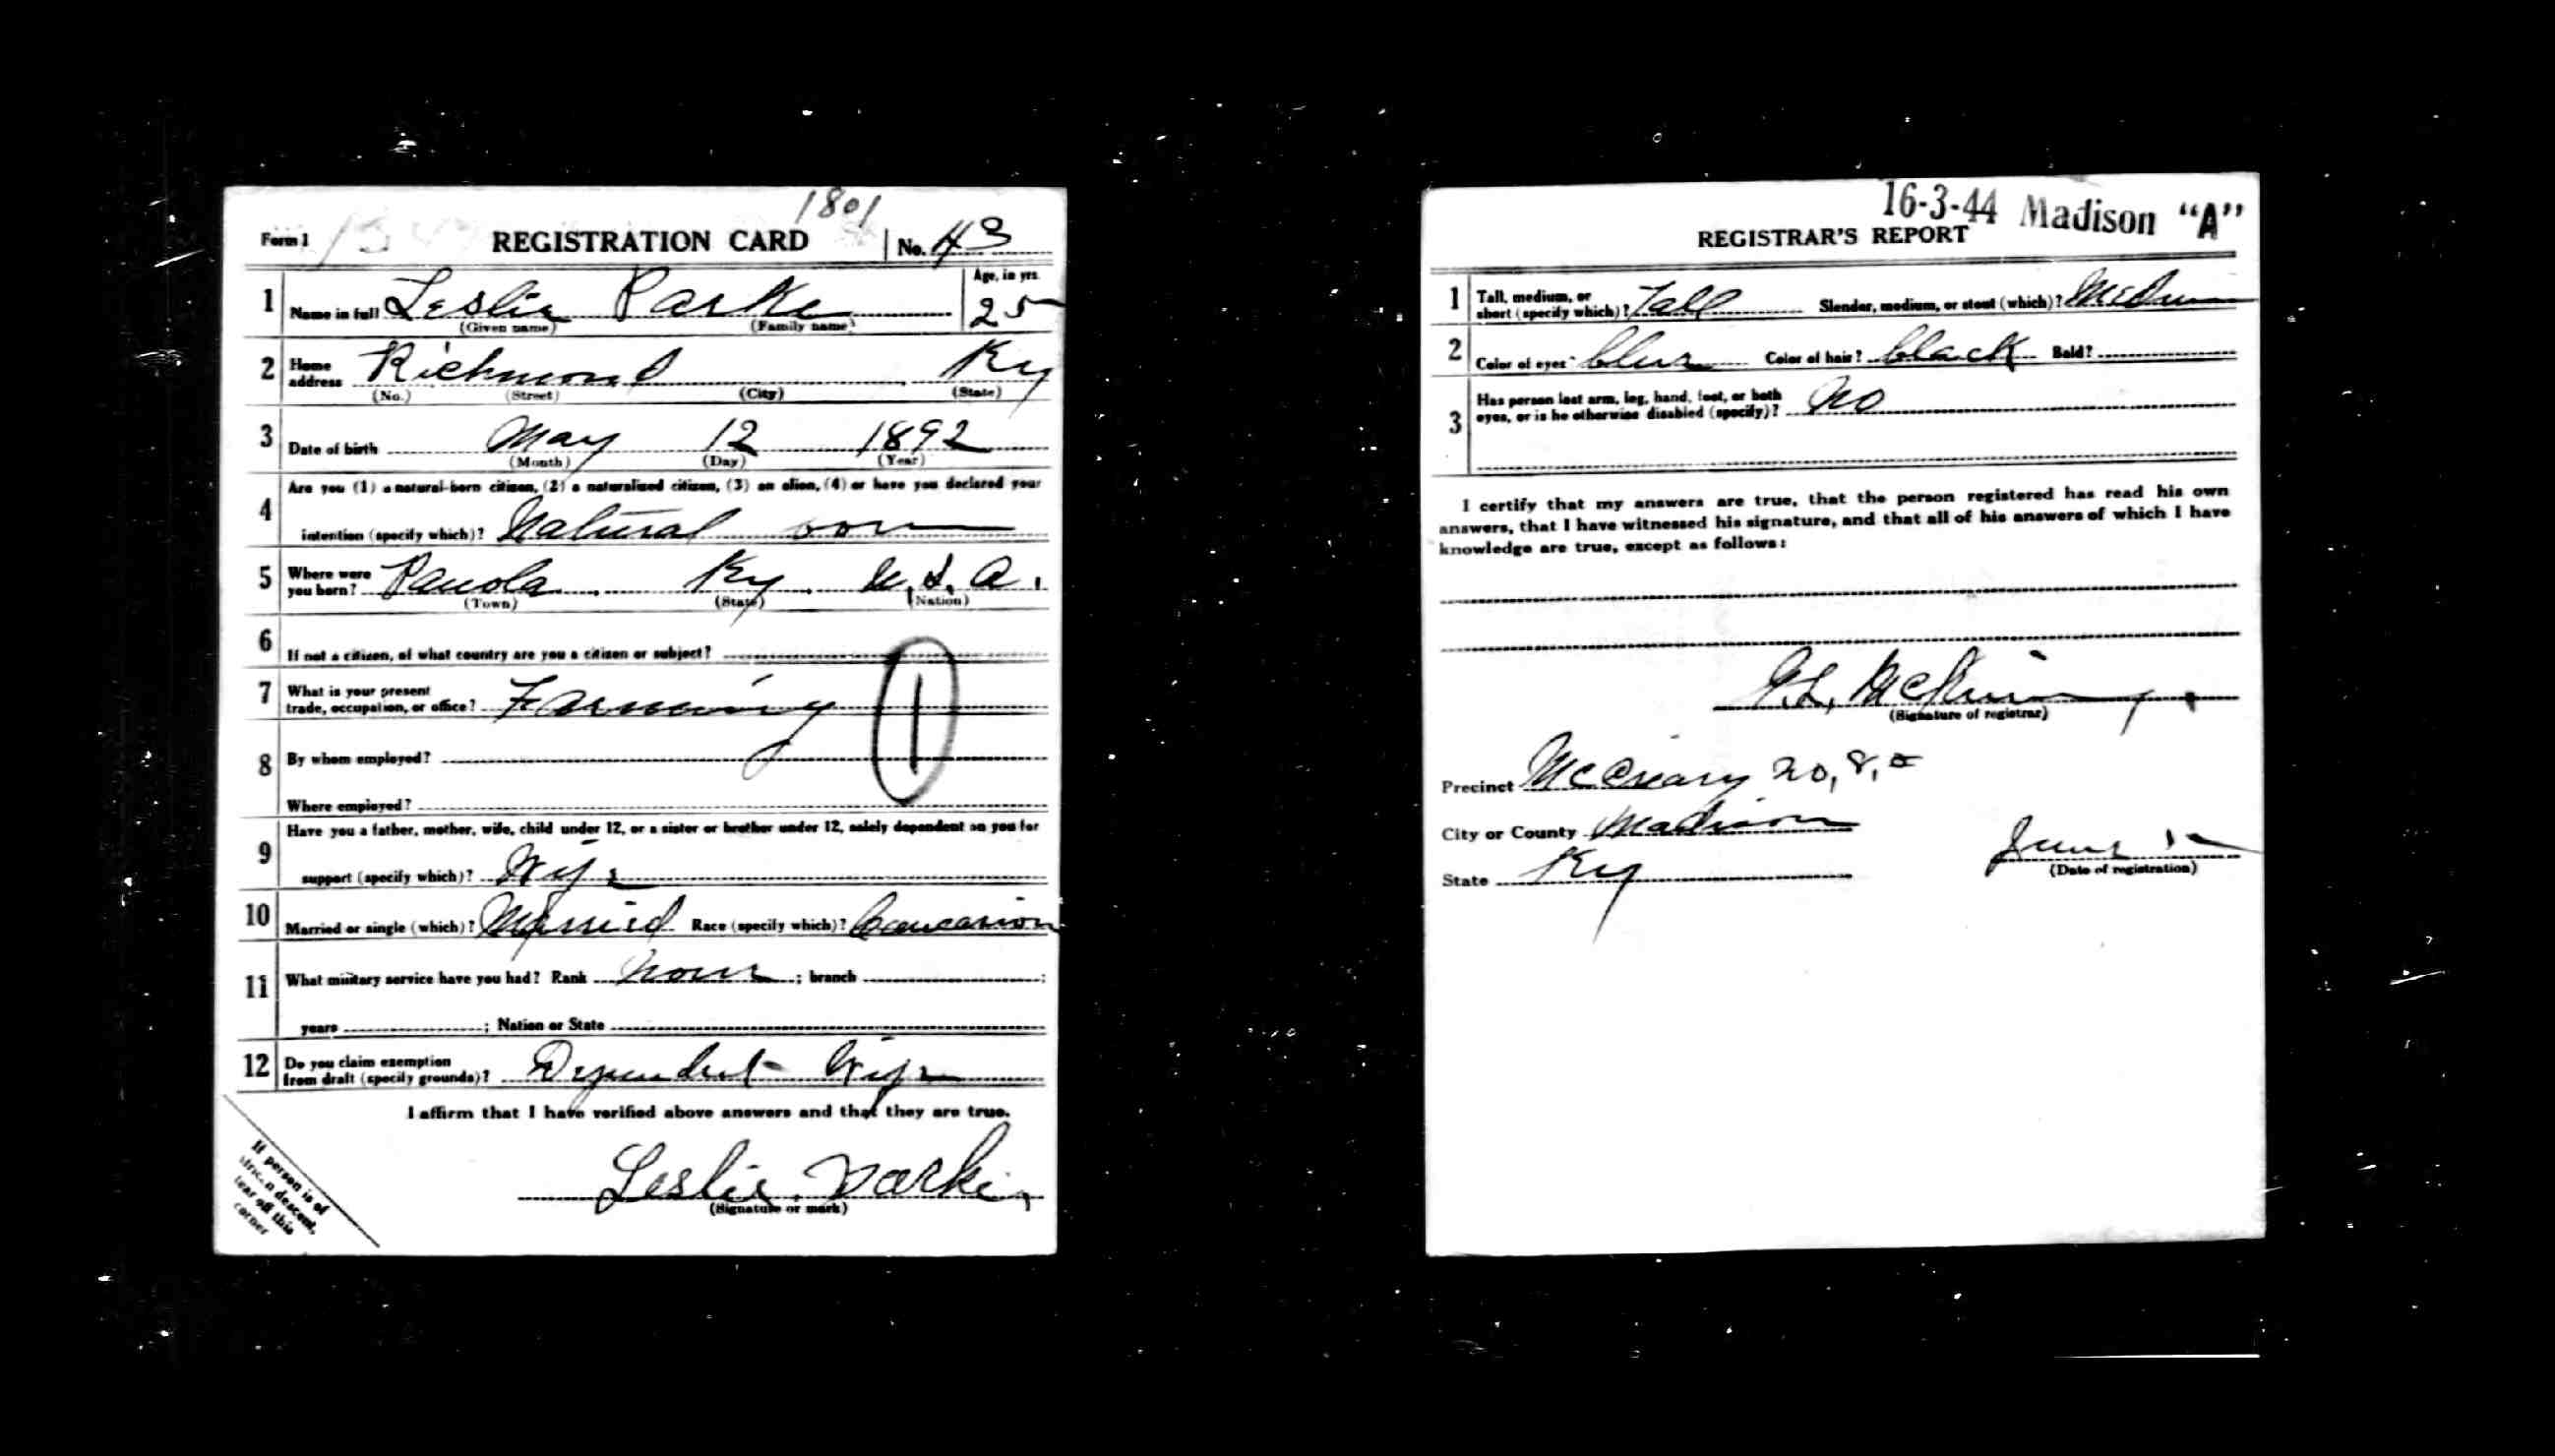 1801
Form 1 REGISTRATION CARD No. 43
1 Name in full Leslie Parke Age, in yrs. 25
(Given name) (Family name)
2 Home address Richmond Ky
(No.) (Street) (City) (State)
3 Date of birth May 12 1892
(Month) (Day) (Year)
4 Are you (1) a natural-born citizen, (2) a naturalized citizen, (3) an alien, (4) or have you declared your
intention (specify which)? Natural
5 Where were you born? Panola Ky U.S.A.
(Town) (State) (Nation)
6 If not a citizen, of what country are you a citizen or subject?
7 What is your present
trade, occupation, or office? Farming 1
8 By whom employed?
Where employed?
9 Have you a father, mother, wife, child under 12, or a sister or brother under 12, solely dependent on you for
support (specify which)? Wife
10 Married or single (which)? Married Race (specify which)? Caucasion
11 What military service have you had? Rank None ; branch ;
years ; Nation or State
12 Do you claim exemption
from draft (specify grounds)? Dependent Wife
I affirm that I have verified above answers and that they are true.
Leslie Parke
(Signature or mark)
If person is of
descent,
tear off this
corner
16-3-44 Madison "A"
REGISTRAR'S REPORT
1 Tall, medium, or
short (specify which)? Tall Slender, medium, or stout (which)? Medium
2 Color of eyes? blue Color of hair? black Bald?
3 Has person lost arm, leg, hand, foot, or both
eyes, or is he otherwise disabled (specify)? No
I certify that my answers are true, that the person registered has read his own
answers, that I have witnessed his signature, and that all of his answers of which I have
knowledge are true, except as follows:
(Signature of registrar)
Precinct McCreary no, 8,
City or County Madison
State Ky June
(Date of registration)